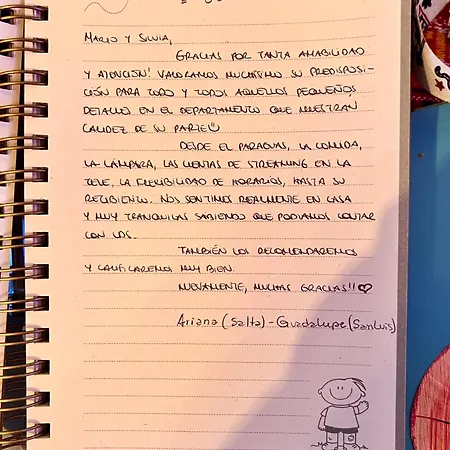 Mario y Silvia,
Gracias por tanta amabilidad
y atención! Valoramos muchísimo su predisposi-
ción para todo y todos aquellos pequeños
detalles en el departamento que muestran
calidez de su parte
Desde el paraguas, la comida,
la lámpara, las cuentas de streaming en la
tele, la flexibilidad de horarios, hasta su
recibimiento. Nos sentimos realmente en casa
y muy tranquilas sabiendo que podíamos contar
con uds.
También los recomendaremos
y calificaremos muy bien.
Nuevamente, muchas gracias!!♡
Ariana (Salta) - Guadalupe (San Luis)